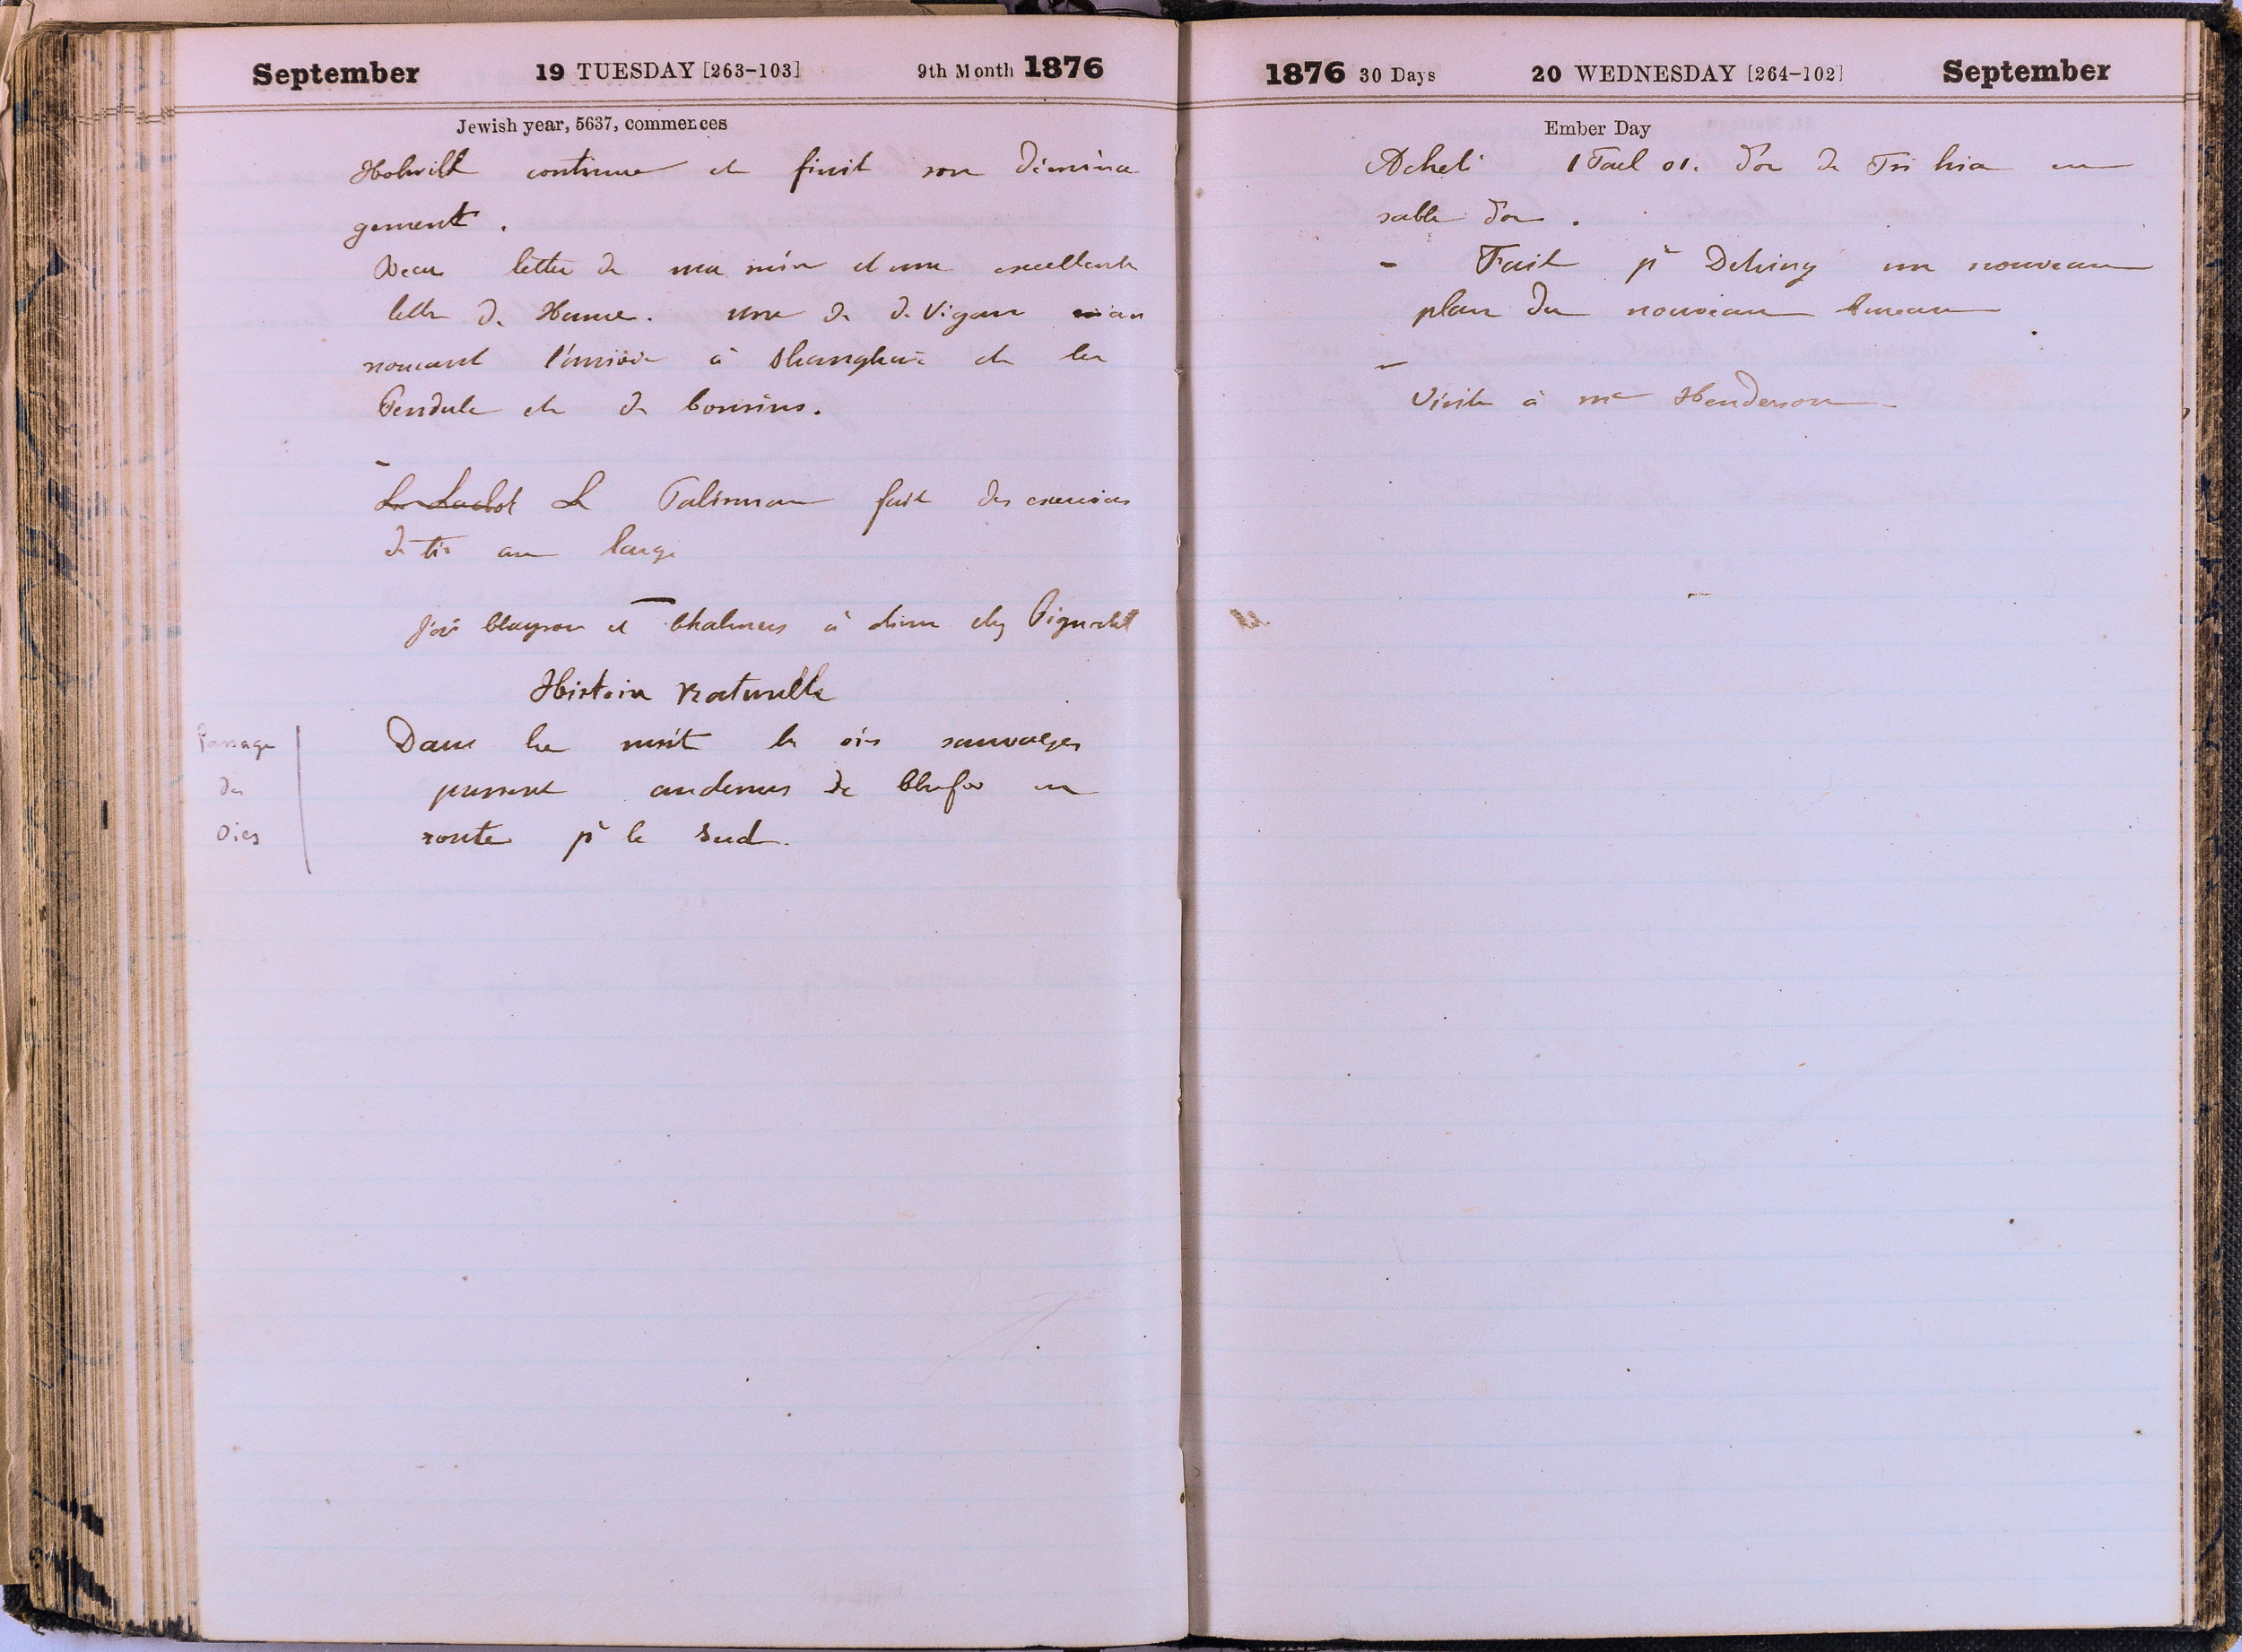 September 19 TUESDAY [263-103] 9th Month 1876
Jewish year, 5637, commences
Holwill continue et finit son déména
gement.
Recu lettre de ma mère et une excellente
lettre de Hume. une de de Vigan an
noncant l'arrivée à Shanghai de la
Pendule et de
Le Talisman fait des exercices
de tir au large
J'ai et Chalmers à diner chez
Histoire Naturelle
Passage
des
Oies
Dans la nuit les oies sauvages
passent au dessus de Chefoo en
route pr le Sud.
1876 30 Days 20 WEDNESDAY [264-102] September
Ember Day
Acheté 1 Tael 01. d'or de Tsi hia en
sable d'or.
- Fait pr Detring un nouveau
plan du nouveau bureau
-
Visite à Me Henderson